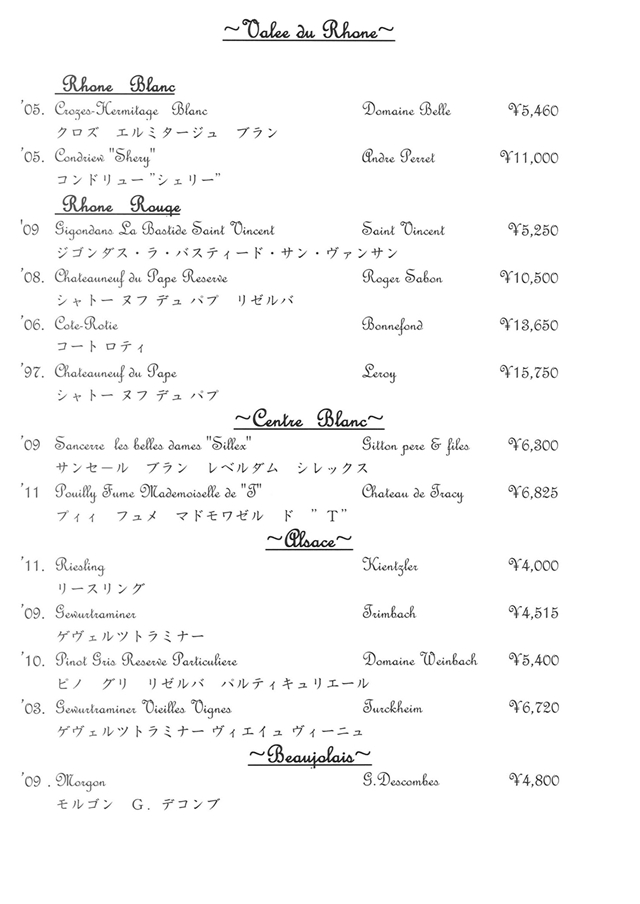 ~Valee du Rhone~
Rhone Blanc
'05. Crozes-Hermitage Blanc Domaine Belle ¥5,460
クロズ エルミタージュ ブラン
'05. Condriew "Shery" Andre Perret ¥11,000
コンドリュー”シェリー”
Rhone Rouge
'09 Gigondans La Bastide Saint Vincent Saint Vincent ¥5,250
ジゴンダス・ラ・バスティード・サン・ヴァンサン
'08. Chateauneuf du Pape Reserve Roger Sabon ¥10,500
シャトー ヌフ デュ パプ リゼルバ
'06. Cote-Rotie Bonnefond ¥13,650
コート ロティ
'97. Chateauneuf du Pape Leroy ¥15,750
シャトー ヌフ デュ パプ
~Centre Blanc~
'09 Sancerre les belles dames "Sillex" Gitton pere & files ¥6,300
サンセール ブラン レベルダム シレックス
'11 Pouilly Fume Mademoiselle de "T" Chateau de Tracy ¥6,825
プィィ フュメ マドモワゼル ド ”T”
~Alsace~
'11. Riesling Kientzler ¥4,000
リースリング
'09. Gewurtraminer Trimbach ¥4,515
ゲヴェルツトラミナー
'10. Pinot Gris Reserve Particuliere Domaine Weinbach ¥5,400
ピノ グリ リゼルバ パルティキュリエール
'03. Gewurtraminer Vieilles Vignes Turckheim ¥6,720
ゲヴェルツトラミナー ヴィエイュ ヴィーニュ
~Beaujolais~
'09 . Morgon G.Descombes ¥4,800
モルゴン G. デコンブ